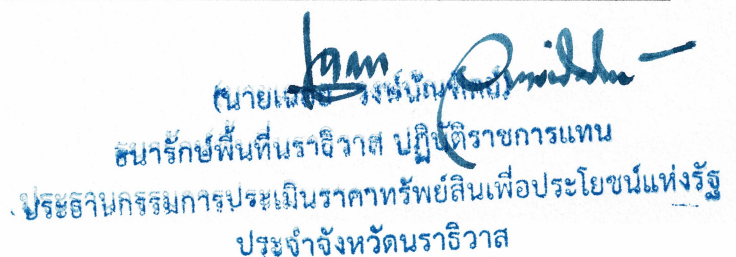 (นาย
ธนารักษ์พื้นที่นราธิวาส ปฏิบัติราชการแทน
ประธานกรรมการประเมินราคาทรัพย์สินเพื่อประโยชน์แห่งรัฐ
ประจำจังหวัดนราธิวาส